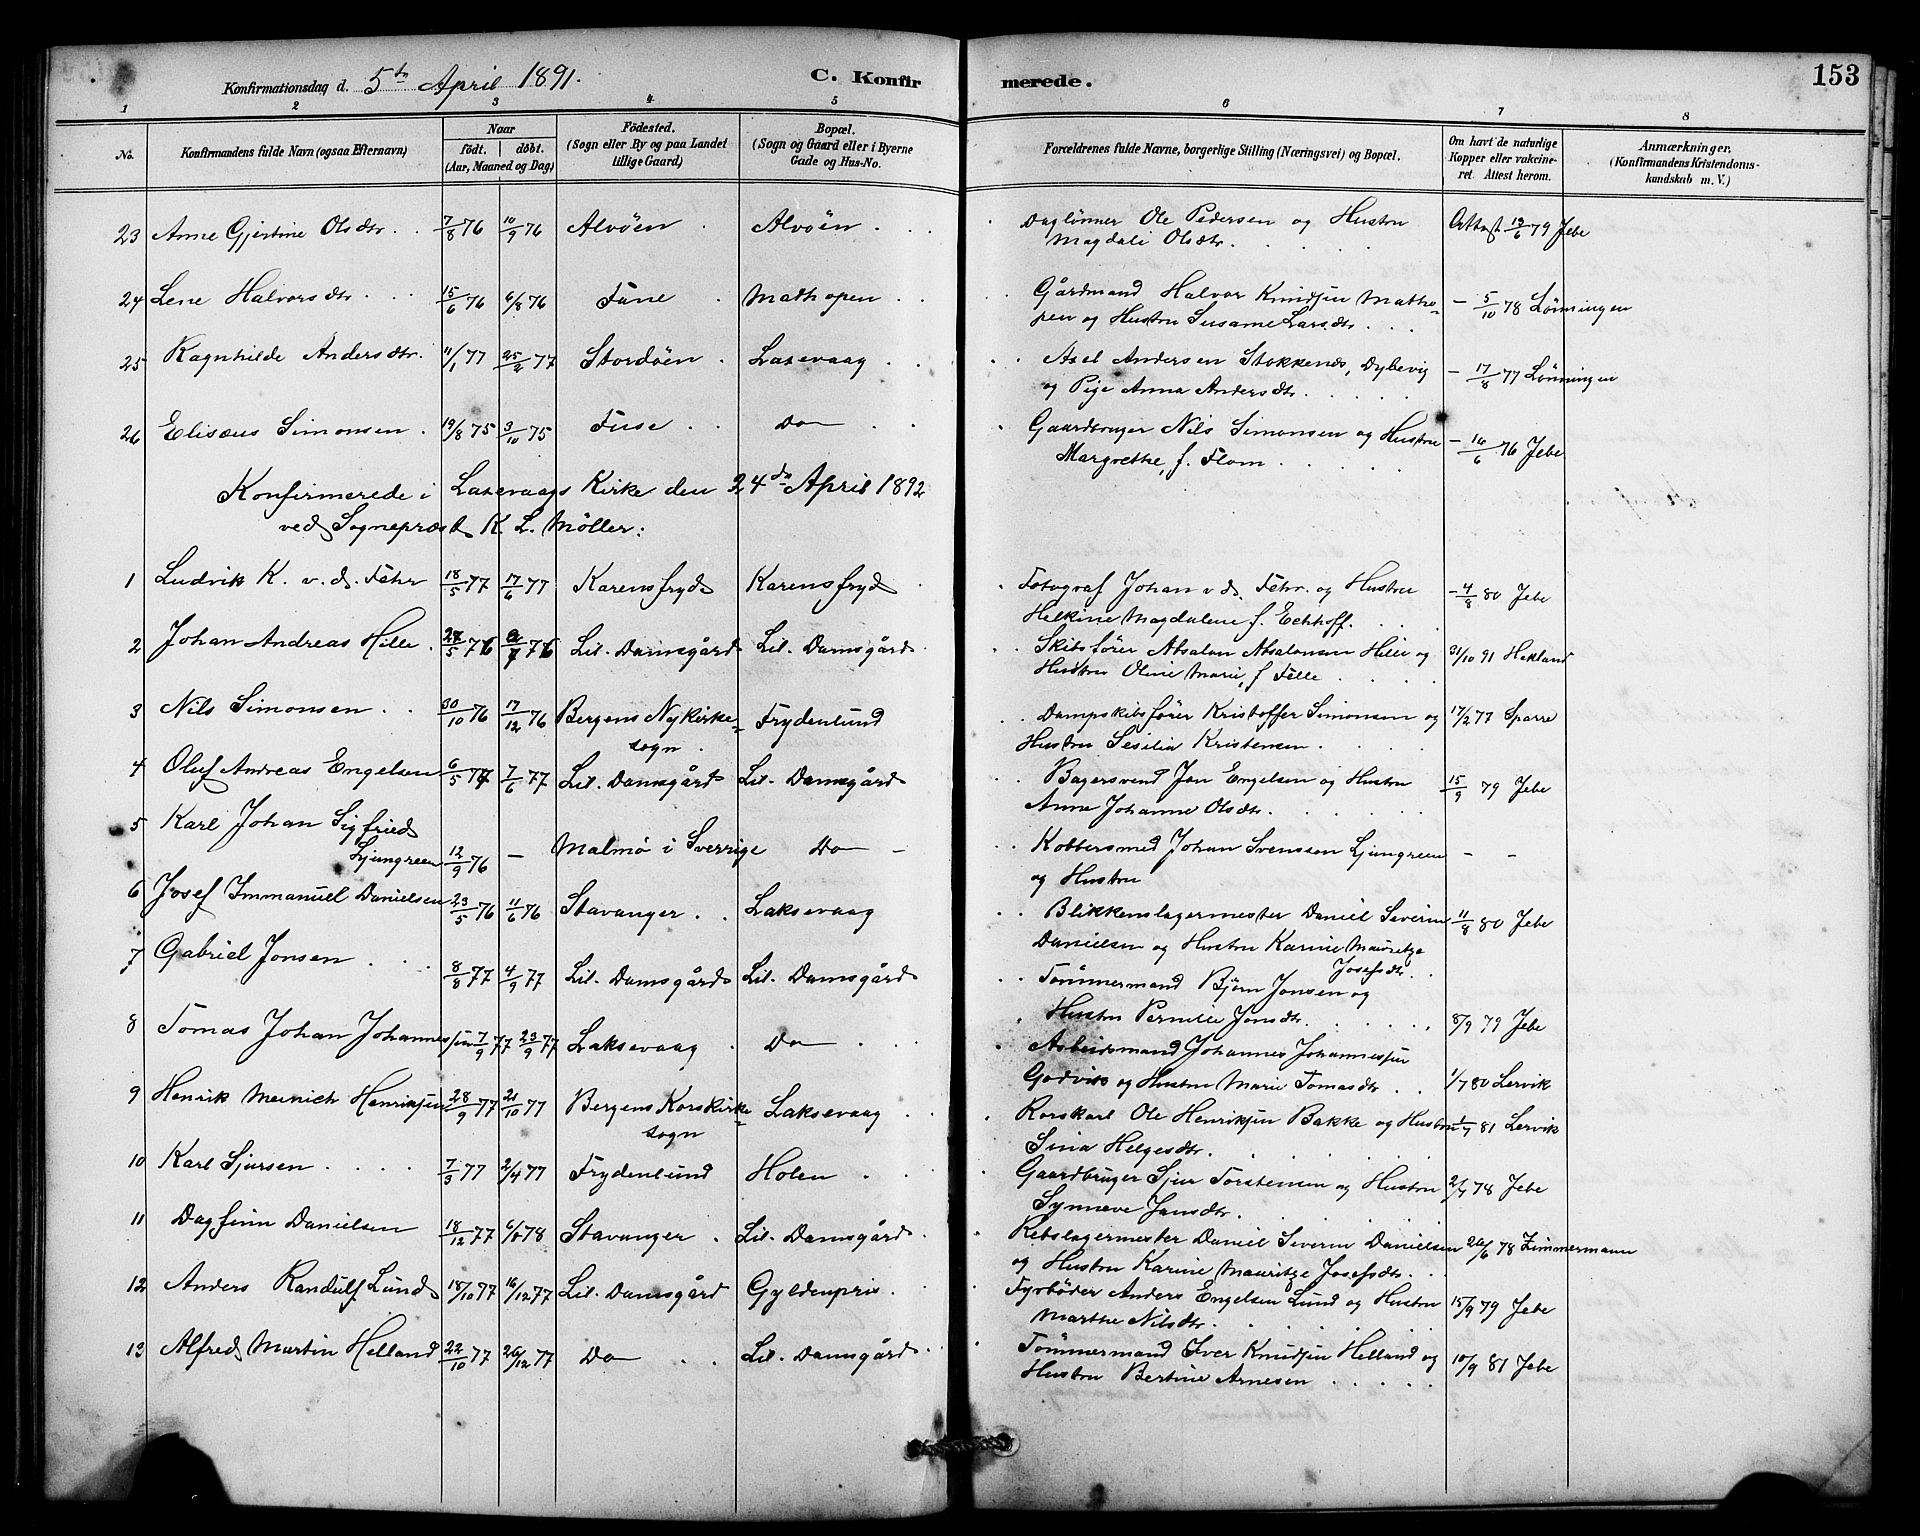 Konfirmationsdag d. 5te April 1891. C. Konfirmerede. 153
1 2 3 4 5 6 7 8
No. Konfirmandens fulde Navn (ogsaa Efternavn) Naar födt. döbt. (Aar, Maaned og Dag) Födested. (Sogn eller By og paa Landet tillige Gaard) Bopæl. (Sogn og Gaard eller i Byerne Gade og Hus-No. Forældrenes fulde Navne, borgerlige Stilling (Næringsvei) og Bopæl. Om havt de naturlige Kopper eller vakcineret. Attest herom. Anmærkninger. (Konfirmandens Kristendomskundskab m. V.)
23 Anne Gjertine Olsdtr. 7/8 76 10/9 76 Alvöen Alvöen Daglönner Ole Pedersen og Hustru
Magdali Olsdtr. Attest 13/6 79 Jebe
24 Lene Halvorsdtr. 15/6 76 6/8 76 Fane Mathopen Gårdmand Halvor Knudsen Matho-
pen og Hustru Susanne Larsdtr. - 5/10 78 Lönningen
25 Ragnhilde Andersdtr. 11/1 77 25/2 77 Stordöen Laxevaag Axel Andersen Stokkenes, Dybevig
og Pige Anna Andersdtr. - 17/8 77 Lönningen
26 Elisæus Simonsen 19/8 75 3/10 75 Fuse Do Gaardbruger Nils Simonsen og Hustru
Margrethe, f. Flom - 16/6 76 Jebe
Konfirmerede i Laxevaags Kirke den 24de April 1892
ved Sognepræst K. L. Möller:
1 Ludvik K. v. d. Fehr 18/5 77 17/6 77 Karensfryd Karensfryd Fotograf Johan v. d. Fehr. og Hustru
Helkine Magdalene f. Echhoff. - 4/8 80 Jebe
2 Johan Andreas Hille 5 76 7 76 Lil. Damsgård Lil. Damsgård Skibsförer Absalon Absalonsen Hille og
Hustru Oline Marie, f Felle 31/10 91 Hekland
3 Nils Simonsen 30/10 76 17/12 76 Bergens Nykirke-
sogn Frydenlund Dampskibsförer Kristoffer Simonsen og
Hustru Sesilia Kristensen 17/2 77 Sparre
4 Oluf Andreas Engelsen 6/5 77 7/6 77 Lil. Damsgård Lil. Damsgård Bagersvend Jon Engelsen og Hustru
Anne Johanne Olsdtr. 15/9 79 Jebe
5 Karl Johan Sigfried
Ljungreen 12/9 76 - Malmö i Sverrige Do - Kobbersmed Johan Svenssen Ljungreen
og Hustru - -
6 Josef Immanuel Danielsen 23/5 76 11/6 76 Stavanger Laksevaag Blikkenslagermester Daniel Severin
Danielsen og Hustru Karine Mauritze
Josefsdtr. 11/8 80 Jebe
7 Gabriel Jonsen 8/8 77 4/9 77 Lil. Damsgård Lil. Damsgård Tömmermand Björn Jonsen og
Hustru Pernille Jonsdtr. 8/9 79 Jebe
8 Tomas Johan Johannessen 7/9 77 23/9 77 Laksevaag Do Arbeidsmand Johannes Johannessen
Godvik og Hustru Marie Tomasdtr. 1/7 80 Lervik
9 Henrik Meinich Henriksen 28/9 77 21/10 77 Bergens Korskirke-
sogn Laksevaag Rorskarl Ole Henriksen Bakke og Hustru
Sina Helgesdtr. 1/7 81 Lervik
10 Karl Sjursen 7/3 77 2/4 77 Frydenlund Holen Gaardbruger Sjur Torstensen og Hustru
Synneve Jansdtr. 2/7 78 Jebe
11 Dagfinn Danielsen 18/12 77 78 Stavanger Lil. Damsgård Rebslagermester Daniel Severin Danielsen
og Hustru Karine Mauritze Josefsdtr. 26/6 78 Zimmermann
12 Anders Randulf Lund 18/10 77 16/12 77 Lil. Damsgård Gyldenpris Fyrböder Anders Engelsen Lund og Hustru
Marthe Nilsdtr. 15/9 79 Jebe
13 Alfred Martin Helland 22/10 77 26/12 77 Do Lil. Damsgård Tömmermand Iver Knudsen Helland og
Hustru Bertine Arnesen 10/9 81 Jebe